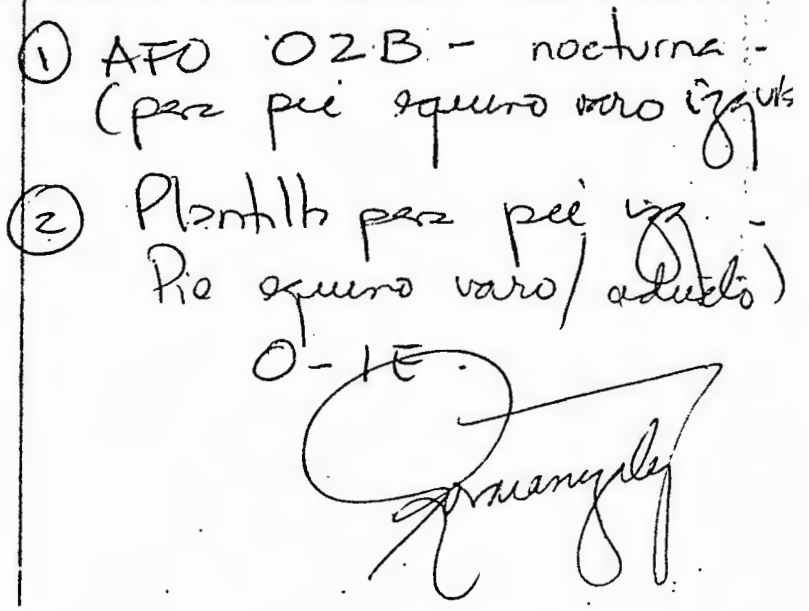 ① AFO O2B - nocturna -
(para pié equino varo izquis
② Plantilla para pié izq. -
Pie equino varo / aducto)
O-1E.